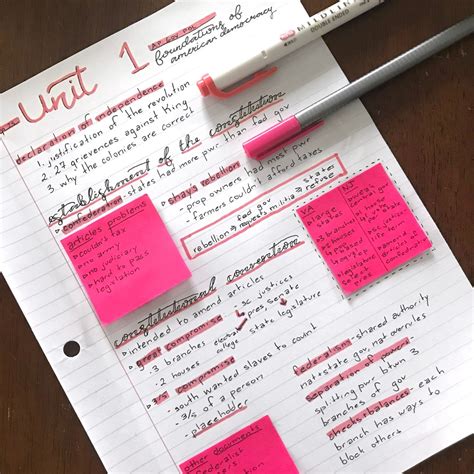 Unit 1
AP GOV POL
foundations of
american democracy
MILDLINER
DOUBLE ENDED
declaration of independence
1. justification of the revolution
2. 27 grievances against king
3. why the colonies are correct
Establishment of the constitution
confederation states had more pwr than fed gov
articles problems
couldn't tax
no army
no judiciary
hard to pass
legislation
shay's rebellion
prop owners had most pwr
farmers couldn't afford taxes
rebellion → fed gov requests militia → states refuse
VA
large
states
NJ
constitutional convention
intended to amend articles
great compromise
3 branches
electoral college
sc justices
pres, senate
state legislature
2 houses
3/5 compromise
south wanted slaves to count
3/5 of a person
placeholder
federalism - shared authority
nat + state gov, nat overrules
separation of powers
splitting pwr btwn 3
branches of gov
checks + balances - each
branch has ways to
block others
other documents
federalist